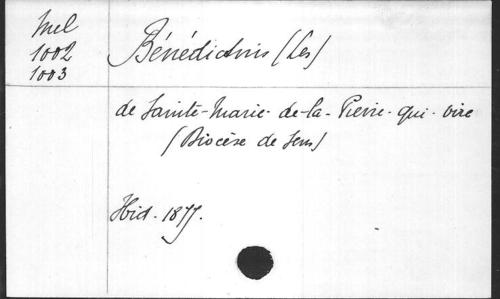 Mel
1002
1003
Bénédictins (Les)
de Sainte-Marie-de-la-Pierre-qui-vire
(Diocèse de Sens)
Ibid - 1877.